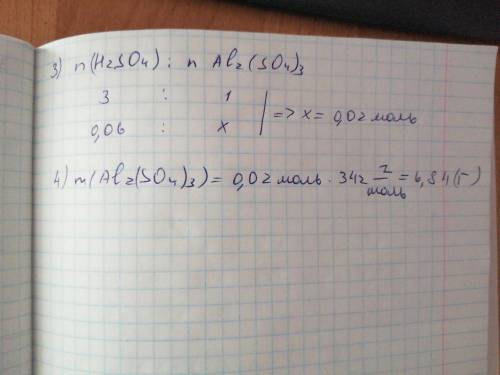 3) n(H2SO4) : n Al2(SO4)3
3 : 1
0,06 : x | => x = 0,02 моль
4) m(Al2(SO4)3) = 0,02 моль · 342 г/моль = 6,84 (г)